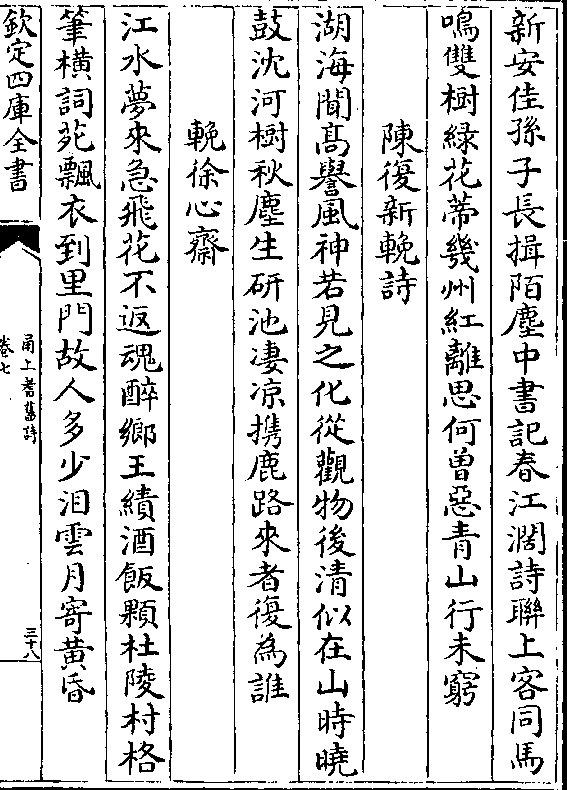 新安佳孫子長揖陌塵中書記春江濶詩聯上客同馬
鳴雙樹緑花蔕幾州紅離思何曽惡青山行未窮
陳復新輓詩
湖海聞髙譽風神若見之化從觀物後清似在山時曉
鼓沈河樹秋塵生研池凄凉携鹿路來者復為誰
輓徐心齋
江水夢來急飛花不返魂醉鄉王績酒飯顆杜陵村格
筆横詞苑飄衣到里門故人多少泪雲月寄黄昏
欽定四庫全書
甬上耆舊詩
卷七
三十八